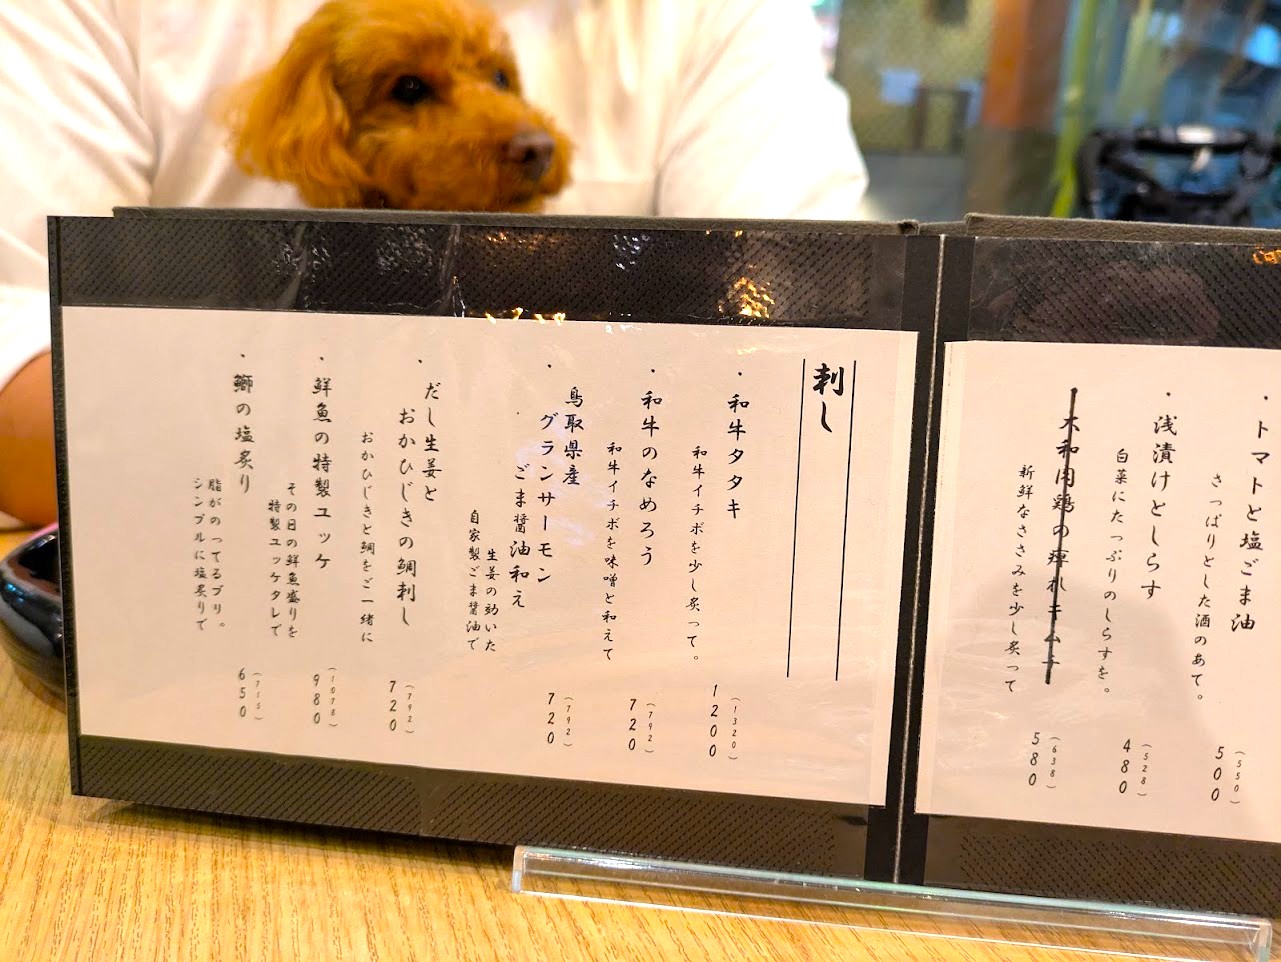 トマトと塩ごま油
さっぱりとした酒のあて。
500
(550)
・浅漬けとしらす
白菜にたっぷりのしらすを。
480
(528)
新鮮なささみを少し炙って
580
(638)
刺し
・和牛タタキ
和牛イチボを少し炙って。
1200
(1320)
・和牛のなめろう
和牛イチボを味噌と和えて
720
(792)
・鳥取県産
グランサーモン
ごま醤油和え
生姜の効いた
自家製ごま醤油で
720
(792)
・だし生姜と
おかひじきの鯛刺し
おかひじきと鯛をご一緒に
720
(792)
・鮮魚の特製ユッケ
その日の鮮魚盛りを
特製ユッケタレで
980
(1078)
・鰤の塩炙り
脂がのってるブリ。
シンプルに塩炙りで
650
(715)